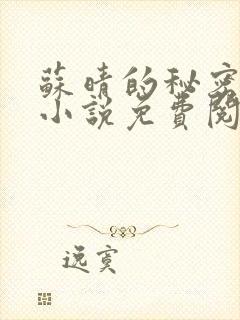 蘇晴的秘密
小說免費閱
逸寞